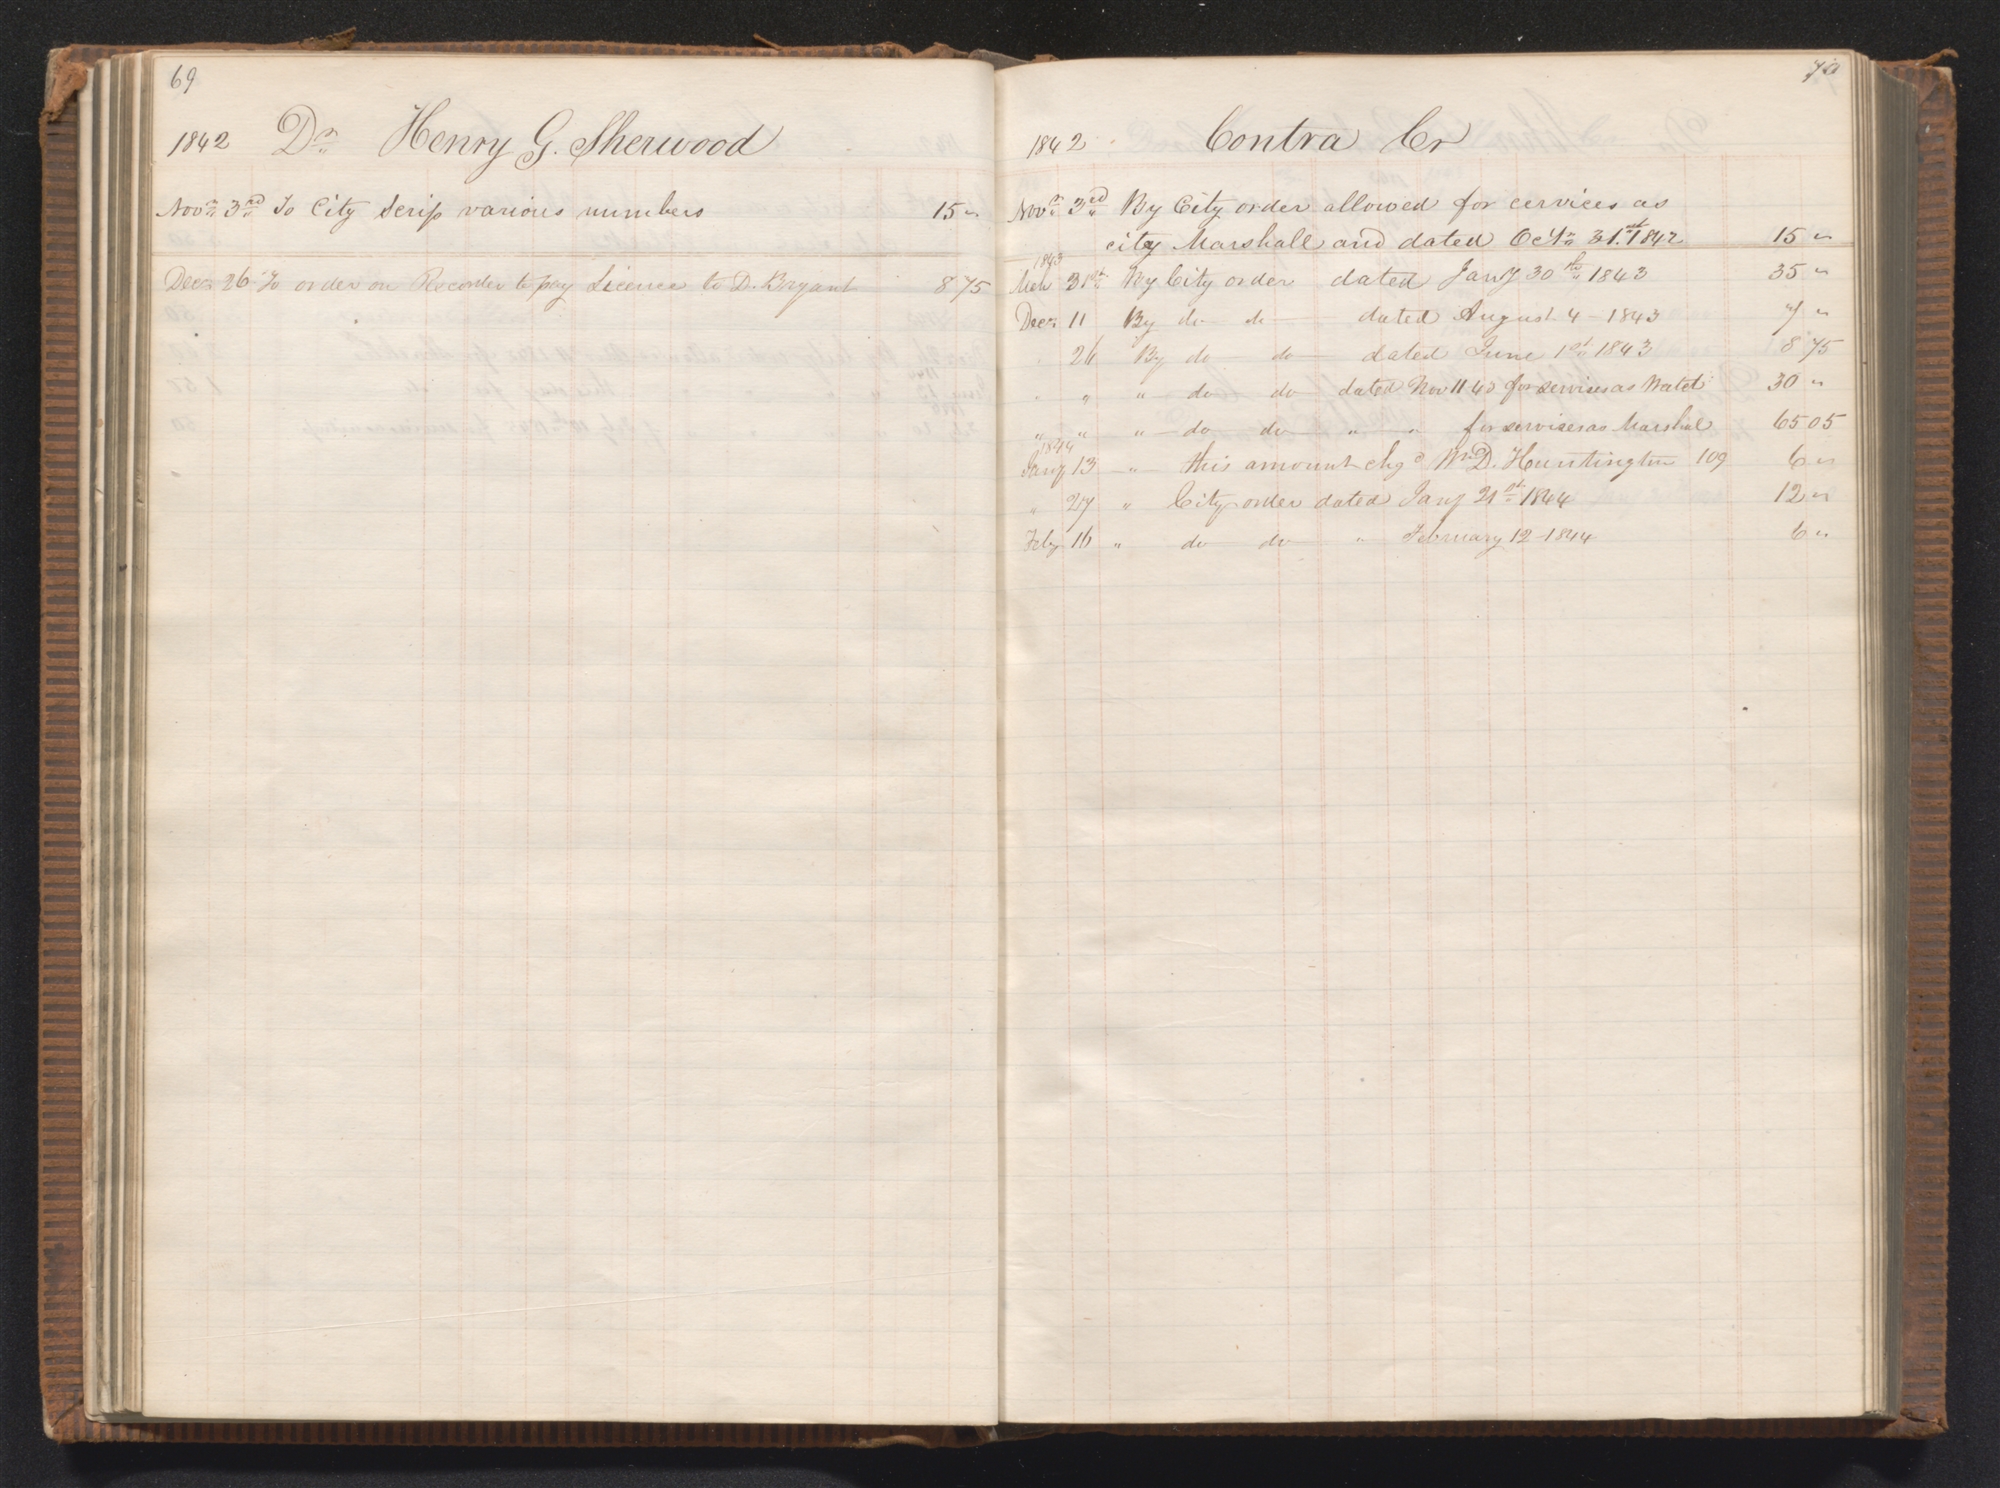 69
1842 Dr. Henry G. Sherwood
Novr. 3rd To City Scrip various numbers 15 "
Decr. 26 To order on Recorder to pay Licence to D. Bryant 8 75
70
1842 Contra Cr
Novr. 3rd By City order allowed for cervices as
city Marshall and dated Octr. 31.st 1842 15 "
1843
Mch 31st. By City order dated Jany 30th. 1843 35 "
Decr. 11 By do do dated August 4 - 1843 7 "
26 By do do dated June 1st. 1843 8 75
" " " do do dated Nov 11 43 for services as Watch 30 "
" " " do do " " for services as Marshal 65 05
1844
Jany 13 " this amount chgd Wm D. Huntington 109 6 "
" 27 " City order dated Jany 21st. 1844 12 "
Feby 16 " do do " February 12 - 1844 6 "